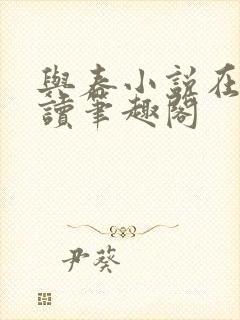 與春小說在
讀筆趣閣
尹葵